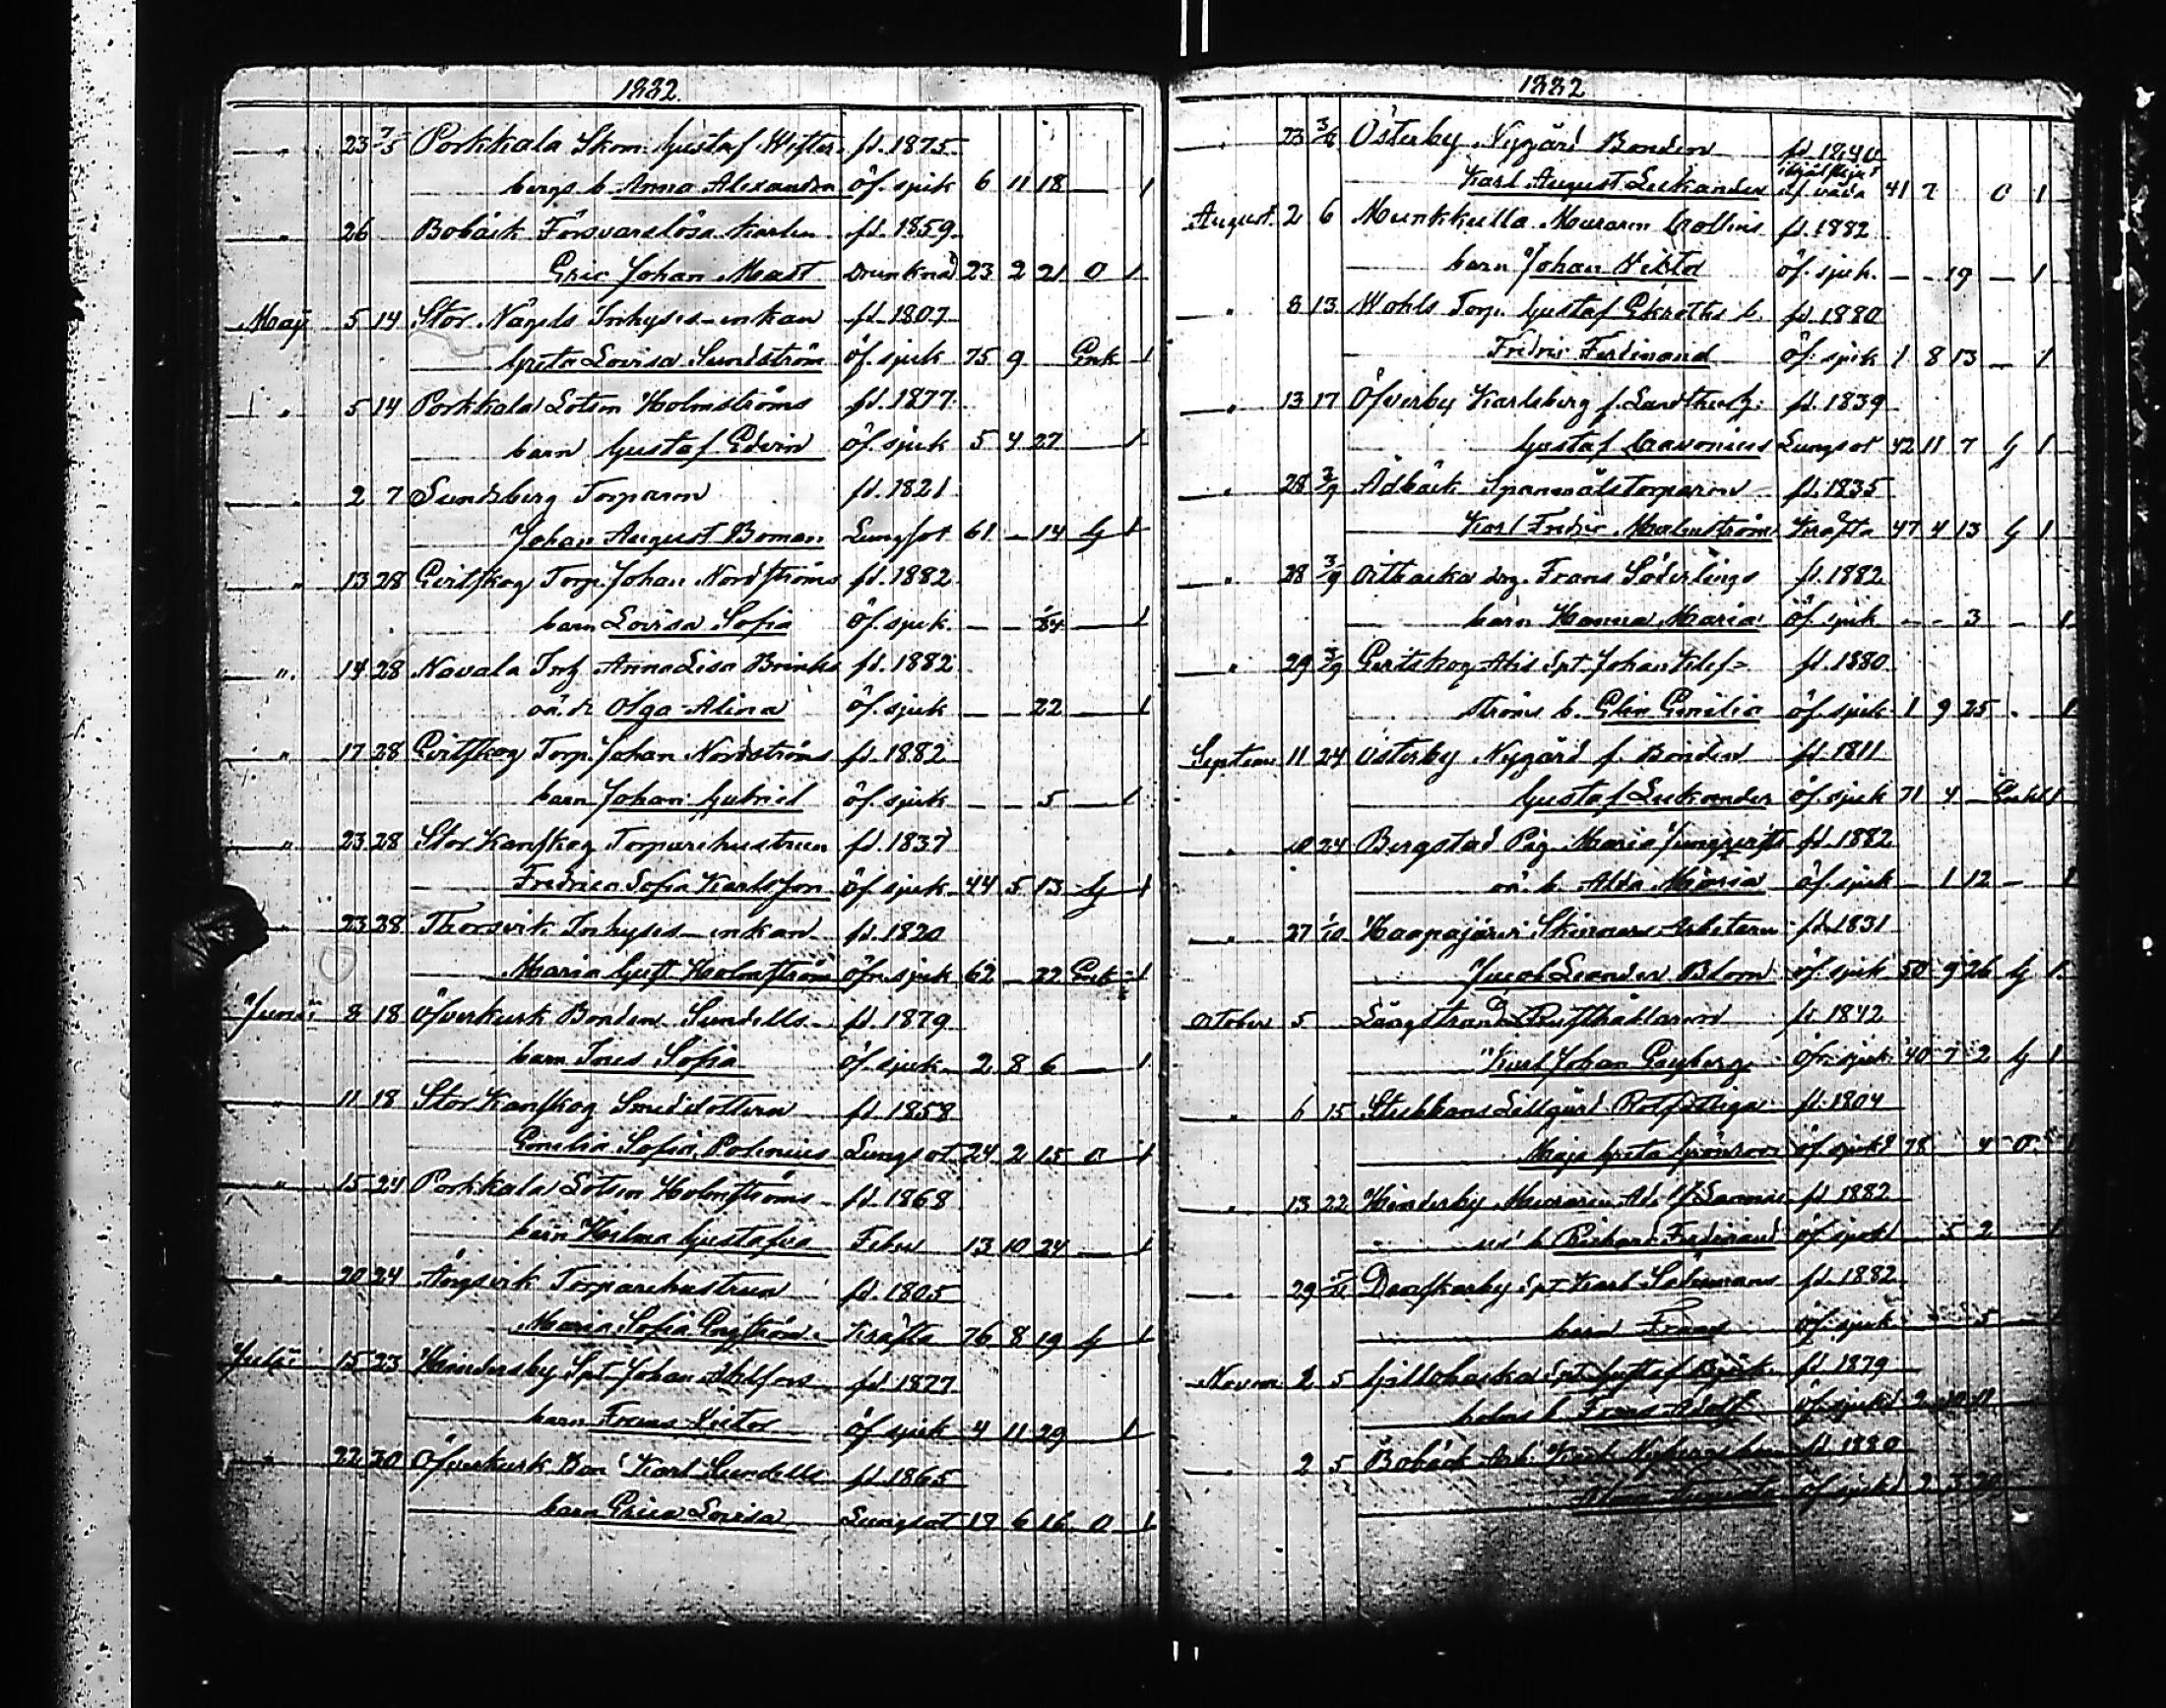 1882.
" 23 7/5 Porkkala Skom. Gustaf Wester- fd. 1875
bergs b. Anna Alexandra öf. sjuk 6 11 18 — 1
" 26 Bobäck Försvarslösa karlen fd. 1859
Eric Johan Mast Drunknad 23 2 21 O 1
Maj 5 14 Stor Nägels Inhyses-enkan fd. 1807
Greta Lovisa Sundström öf. sjuk 75 9 Enk 1
" 5 14 Porkkala Lotsen Holmströms fd. 1877
barn Gustaf Edvin öf. sjuk 5 4 27 — 1
" 2 7 Sundsberg Torparen fd. 1821
Johan August Boman Lungsot 61 — 14 G 1
" 13 28 Evitskog Torp. Johan Nordströms fd. 1882
barn Lovisa Sofia öf. sjuk — — 1
" 14 28 Navala Inh. Anna Lisa Brinks fd. 1882
oä. dr Olga Alina öf. sjuk — — 22 — 1
" 17 28 Evitskog Torp. Johan Nordströms fd. 1882
barn Johan Gabriel öf. sjuk — — 5 — 1
" 23 28 Stor Kanskog Torparehustrun fd. 1837
Fredrica Sofia Karlsson öf. sjuk 44 5 13 G 1
" 23 28 Thorsvik Inhyses-enkan fd. 1820
Maria Gust. Holmström öfr. sjuk 62 — 22 Enk 1
Junii 8 18 Öfverkurk Bonden Sundells fd. 1879
barn Ines Sofia öf. sjuk 2 8 6 — 1
" 11 18 Stor Kanskog Smedsdottern fd. 1858
Emilia Sofia Polenius Lungsot 24 2 15 O 1
" 15 24 Porkkala Lotsen Holmströms fd. 1868
barn Hilma Gustafva Feber 13 10 24 — 1
" 20 24 Ängsvik Torparehustrun fd. 1805
Maria Sofia Engström Kräfta 76 8 19 G 1
Julii 15 23 Hindersby Spt. Johan fd. 1877
barn Frans Victor öf. sjuk 4 11 29 1
" 22 30 Öfverkurk Bon. Karl Sundells fd. 1865
barn Erica Lovisa Lungsot 17 6 16 O 1
1882
" 23 Österby Nygård Bonden fd. 1840
Karl August Lukander af våda 41 7 O 1
August. 2 6 Munkkulla Muraren Collins fd. 1882
barn Johan Viktor öf. sjuk. — — 19 — 1
" 8 13 Wohls Torp. Gustaf Ekroths b. fd. 1880
Fredric Ferdinand öf. sjuk 1 8 13 — 1
" 13 17 Öfverby Karlsberg f. Landthush. fd. 1839
Gustaf Lungsot 42 11 7 G 1
" 28 3/9 Ådbäck Spannmålstorparen fd. 1835
Karl Fredric Malmström Kräfta 47 4 13 G 1
" 28 3/9 Oitbacka drg. Frans Söderlings fd. 1882
barn Hanna Maria öf. sjuk — — 3 — 1
" 29 3/9 Evitskog Ahis Spt. Johan Klef= fd. 1880
ströms b. Elin Emilia öf. sjuk 1 9 25 1
Septem 11 24 Österby Nygård f. Bonden fd. 1811
Gustaf Lukander öf. sjuk 71 4 — Enkl 1
" 20 24 Bergstad Pig. Maria fd. 1882
oä. b. Alda Maria öf. sjuk — 1 12 — 1
" 27 1/10 Haapajärvi Arbetaren fd. 1831
Jacob Leander Blom öf. sjuk 50 9 26 G 1
October 5 Långstrand Rusthållaren fd. 1842
Karl Johan Enberg öfr. sjuk 40 7 2 G 1
" 6 15 Stubbans Lillgård Rotfattiga fd. 1804
Maja Greta Grönroos öf. sjuk 78 4 O
" 13 22 Hindersby Muraren fd. 1882
b. Richard Ferdinand öf. sjuk 5 2 1
" 29 Danskarby Spt. Karl fd. 1882
barn Frans öf. sjuk 5
Novem 2 5 Gillobacka Spt. Gustaf Björk- fd. 1879
holms b. Frans Adolf öf. sjuk 2
" 2 5 Bobäck Arb. Karl Nybergs barn fd. 1880
Augusta öf. sjuk 2 3